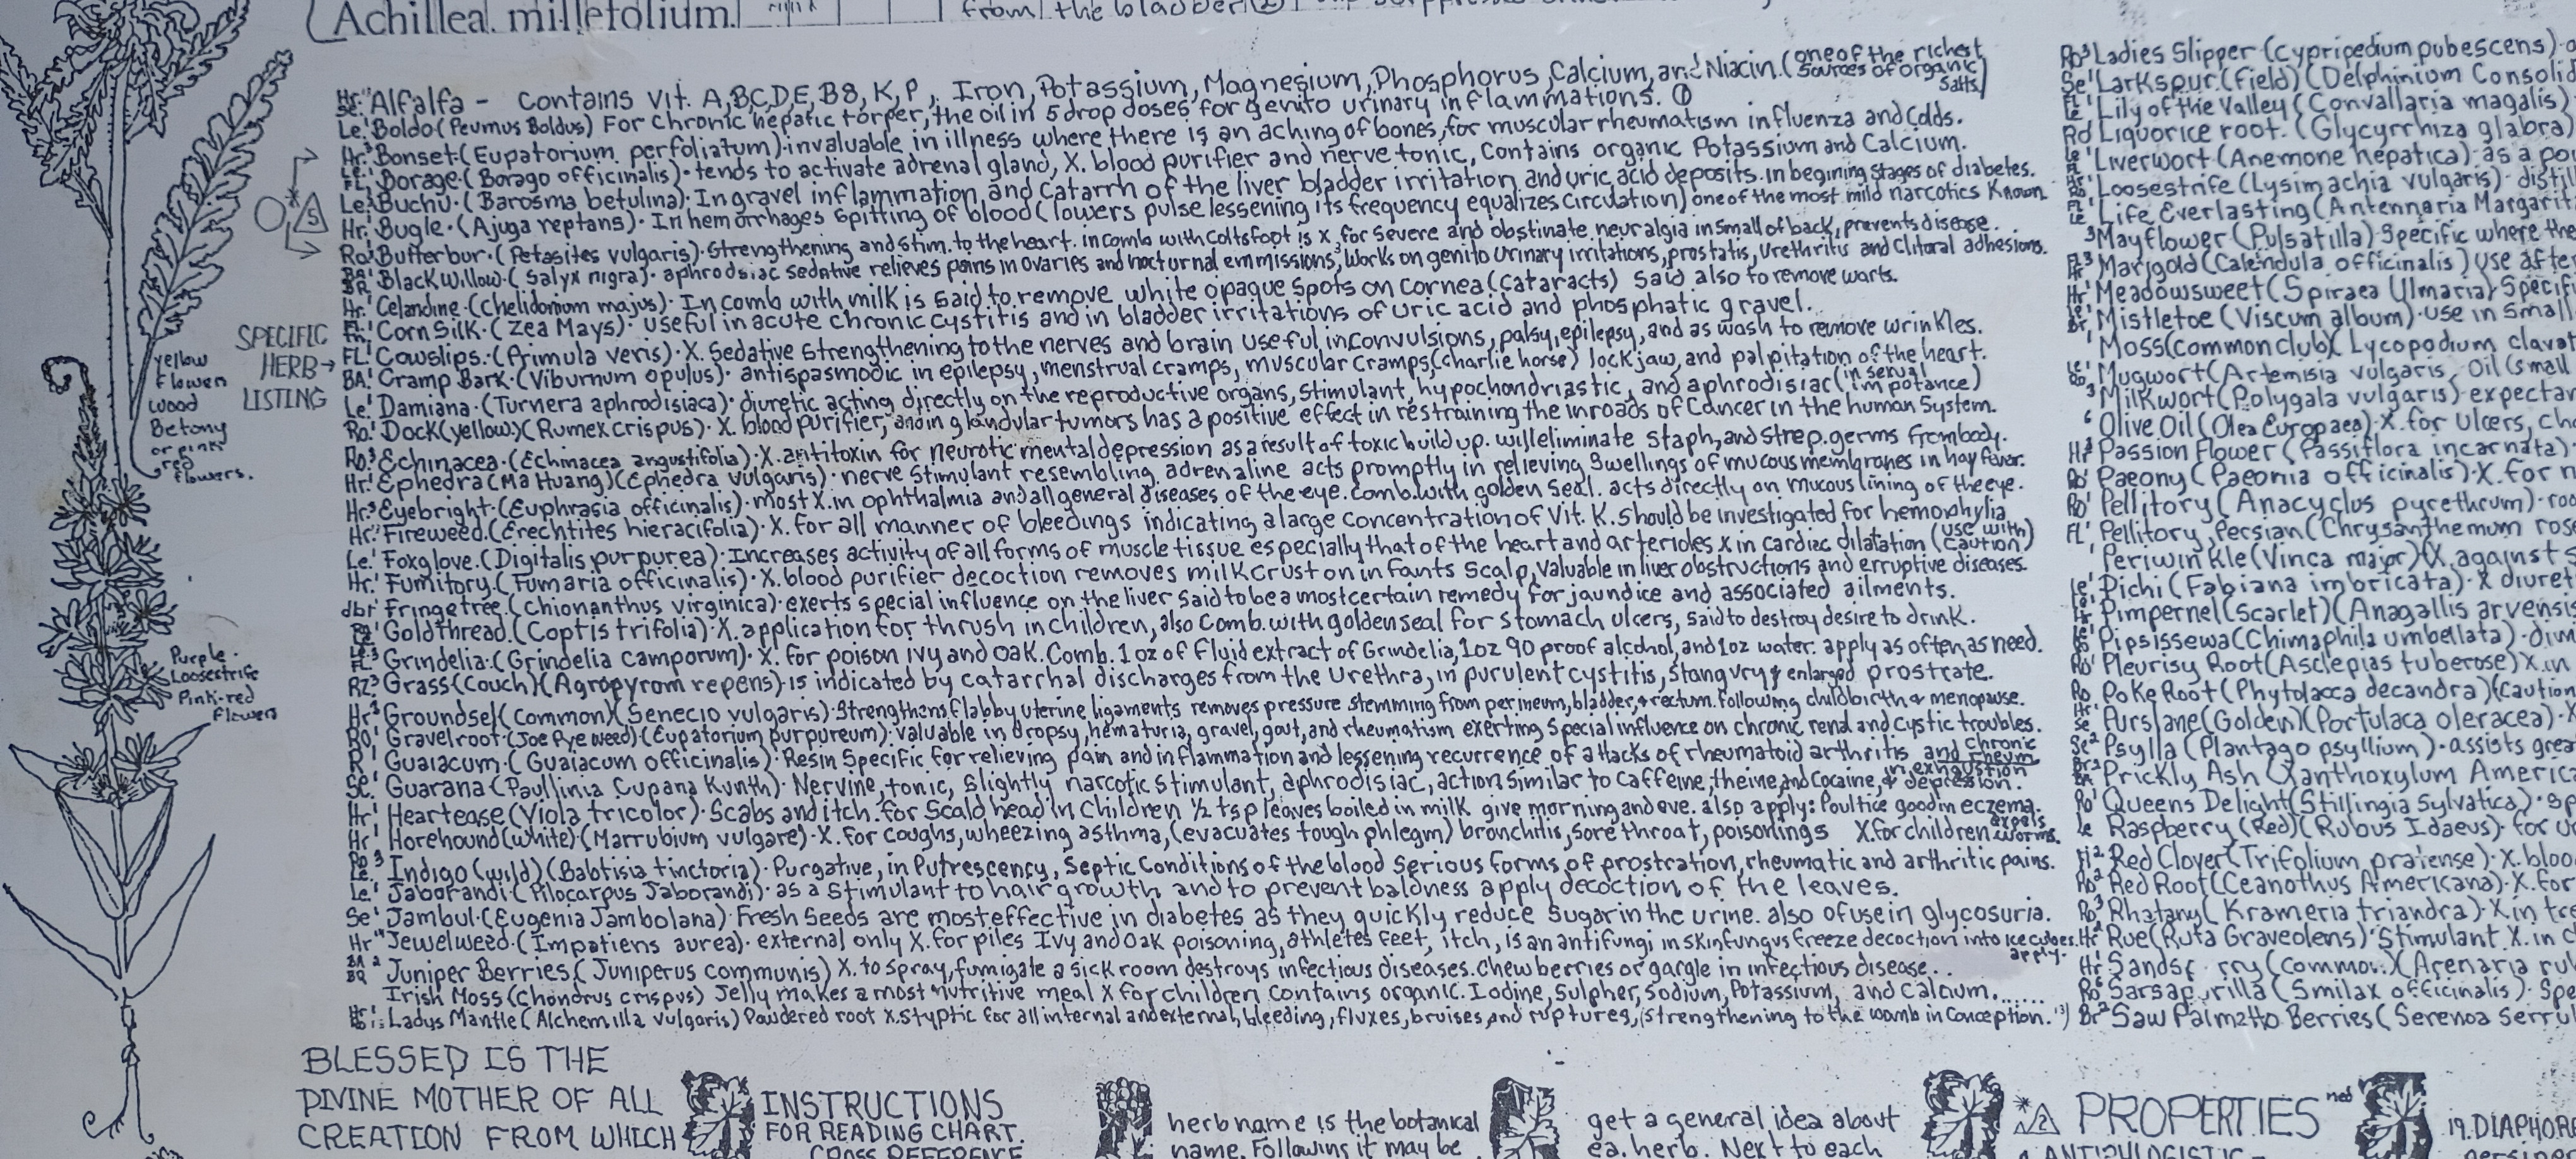 Achillea. millefolium.
from the bladder
Hr. Se. Alfalfa - Contains Vit. A,B,C,D,E, B8, K, P, Iron, Potassium, Magnesium, Phosphorus, Calcium, and Niacin. (one of the richest sources of organic salts)
Le.' Boldo (Peumus Boldus) For Chronic hepatic torper, the oil in 5 drop doses for genito urinary inflammations. ①
Hr.³ Bonset. (Eupatorium perfoliatum). invaluable in illness where there is an aching of bones, for muscular rheumatism influenza and colds.
Le.' FL.' Borage. (Borago officinalis). tends to activate adrenal gland, X. blood purifier and nerve tonic, contains organic Potassium and Calcium.
Le.³ Buchu. (Barosma betulina). In gravel inflammation, and catarrh of the liver bladder irritation and uric acid deposits. In begining stages of diabetes.
Hr.' Bugle. (Ajuga reptans). In hemorrhages spitting of blood (lowers pulse lessening its frequency equalizes circulation) one of the most mild narcotics Known.
Ro.' Butterbur. (Petasites vulgaris). Strengthening and stim. to the heart. in comb with Coltsfoot is X for severe and obstinate neuralgia in small of back, prevents disease.
BA.' BR Black Willow. (Salyx nigra). aphrodsiac sedative relieves pains in ovaries and nocturnal emmissions, works on genito urinary irritations, prostatis, urethritis and clitoral adhesions.
Hr.' Celandine. (Chelidonium majus). In comb with milk is said to remove white opaque spots on cornea (cataracts) Said also to remove warts.
FL.' Corn Silk. (Zea Mays). useful in acute chronic cystitis and in bladder irritations of uric acid and phosphatic gravel.
FL.' Cowslips. (Primula veris). X. Sedative strengthening to the nerves and brain useful in convulsions, palsy, epilepsy, and as wash to remove wrinkles.
BA.' Cramp Bark. (Viburnum opulus). antispasmodic in epilepsy, menstrual cramps, muscular cramps, (charlie horse) lockjaw, and palpitation of the heart.
Le.' Damiana. (Turnera aphrodisiaca). diuretic acting directly on the reproductive organs, Stimulant, hypochondriastic, and aphrodisiac (in sexual impotance)
Ro.' Dock (yellow) (Rumex crispus). X. blood purifier, and in glandular tumors has a positive effect in restraining the inroads of Cancer in the human System.
Ro.³ Echinacea. (Echinacea angustifolia). X. antitoxin for neurotic mental depression as a result of toxic build up. will eliminate Staph, and Strep. germs from body.
Hr.' Ephedra (Ma Huang) (Ephedra vulgaris). nerve stimulant resembling adrenaline acts promptly in relieving swellings of mucous membranes in hay fever.
Hr.³ Eyebright. (Euphrasia officinalis). most X. in ophthalmia and all general diseases of the eye. Comb. with golden seal. acts directly on mucous lining of the eye.
Hr." Fireweed. (Erechtites hieracifolia). X. for all manner of bleedings indicating a large concentration of Vit. K. Should be investigated for hemophylia
Le.' Foxglove. (Digitalis purpurea). Increases activity of all forms of muscle tissue especially that of the heart and arterioles X in cardiac dilatation (use with caution)
Hr.' Fumitory. (Fumaria officinalis). X. blood purifier decoction removes milk crust on infants scalp, valuable in liver obstructions and erruptive diseases.
dbr' Fringetree. (Chionanthus virginica). exerts special influence on the liver Said to be a most certain remedy for jaundice and associated ailments.
Goldthread. (Coptis trifolia). X. application for thrush in children, also comb. with goldenseal for stomach ulcers, said to destroy desire to drink.
Le.³ FL.' Grindelia. (Grindelia camporum). X. for poison ivy and oak. Comb. 1 oz of Fluid extract of Grindelia, 1 oz 90 proof alcohol, and 1 oz water. apply as often, as need.
RZ³ Grass (Couch) (Agropyrom repens). is indicated by catarrhal discharges from the Urethra, in purulent cystitis, Stangvry & enlarged prostrate.
Hr.³ Groundsel (common) (Senecio vulgaris). Strengthens flabby uterine ligaments removes pressure stemming from perineum, bladder, & rectum. following childbirth & menopause.
Ro' Gravelroot. (Joe Pye weed) (Eupatorium purpureum). valuable in dropsy, hematuria, gravel, gout, and rheumatism exerting Special influence on chronic renal and cystic troubles.
R' Guaiacum. (Guaiacum officinalis). Resin Specific for relieving pain and inflammation and lessening recurrence of attacks of rheumatoid arthritis and chronic rheum.
Se.' Guarana (Paullinia Cupana Kunth). Nervine, tonic, slightly narcotic stimulant, aphrodisiac, action similar to caffeine, theine, and cocaine, in exhaustion & depression.
Hr' Heartease (Viola tricolor). Scabs and itch. for Scald head in Children ½ tsp leaves boiled in milk give morning and eve. also apply: Poultice good in eczema.
Hr' Horehound (white) (Marrubium vulgare). X. for coughs, wheezing asthma, (evacuates tough phlegm) bronchitis, sore throat, poisonings X. for children expels worms.
Ro.³ Le.' Indigo (wild) (Babtisia tinctoria). Purgative, in Putrescency, Septic Conditions of the blood serious forms of prostration, rheumatic and arthritic pains.
Le.' Jaborandi (Pilocarpus Jaborandi). as a stimulant to hair growth, and to prevent baldness apply decoction of the leaves.
Se' Jambul. (Eugenia Jambolana). Fresh Seeds are most effective in diabetes as they quickly reduce sugar in the urine. also of use in glycosuria.
Hr" Jewelweed. (Impatiens aurea). external only X. for piles Ivy and Oak poisoning, athletes feet, itch, is an antifungi in skin fungus freeze decoction into ice cubes. apply.
Juniper Berries (Juniperus communis) X. to spray, fumigate a sick room destroys infectious diseases. Chew berries or gargle in infectious disease..
Irish Moss (Chondrus crispus) Jelly makes a most nutritive meal X for children Contains organic. Iodine, Sulpher, Sodium, Potassium, and Calcium.......
Hr' Ladys Mantle (Alchemilla vulgaris) Powdered root X. styptic for all internal and external, bleeding, fluxes, bruises, and ruptures, (strengthening to the womb in conception.
SPECIFIC
HERB→
LISTING
yellow
flower
wood
Betony
or pink
red
flowers.
Purple.
Loosestrife
Pink-red
flowers
Ro³ Ladies Slipper (Cypripedium pubescens).
Se' Larkspur. (field) (Delphinium Consolid
FL' Le Lily of the Valley (Convallaria magalis)
Ro' Liquorice root. (Glycyrrhiza glabra)
Le' Liverwort (Anemone hepatica) as a
Loosestrife (Lysimachia vulgaris). distill
FL' Le Life Everlasting (Antennaria Margarit
³ Mayflower (Pulsatilla) Specific where the
FL³ Hr' Marigold (Calendula officinalis) use after
Hr' Meadowsweet (Spiraea Ulmaria) Specif
Le' Br. Mistletoe (Viscum album). use in small
' Moss (common club) (Lycopodium clavat
Le' Ro. Mugwort (Artemisia vulgaris. Oil (small
³ Milkwort (Polygala vulgaris). expectar
⁶ Olive Oil (Olea Europaea). X. for Ulcers, ch
Hr³ Passion Flower (Passiflora incarnata)
Ro' Paeony (Paeonia officinalis). X. for
Ro' Pellitory (Anacyclus pyrethrum).
FL' Pellitory, Persian (Chrysanthemum
' Periwinkle (Vinca major) (X. against
Le' Pichi (Fabiana imbricata). X diuret
Hr Pimpernel (Scarlet) (Anagallis arvensi
Pipsissewa (Chimaphila umbellata).
Ro' Pleurisy Root (Asclepias tuberose) X. in
Ro Poke Root (Phytolacca decandra) (Caution
Hr' Se Purslane (Golden) (Portulaca oleracea).
Se² Psylla (Plantago psyllium). assists grea
Br² BA Prickly Ash (Xanthoxylum Americ
Ro' Queens Delight (Stillingia Sylvatica).
Le Raspberry (Red) (Rubus Idaeus). for
Red Clover (Trifolium pratense). X. bloo
Ro² Red Root (Ceanothus Americana). X. for
Ro³ Rhatany (Krameria triandra). X in
Hr² Rue (Ruta Graveolens) Stimulant X. in
Hr' (Arenaria
Ro⁶ (Smilax officinalis).
Br² Saw Palmetto Berries (Serenoa Serrul
BLESSED IS THE
DIVINE MOTHER OF ALL
CREATION FROM WHICH
INSTRUCTIONS
FOR READING CHART.
CROSS REFERENCE
herb name is the botanical
name. Following it may be
get a general idea about
ea. herb. Next to each
PROPERTIES
ANTIPHLOGISTIC
19. DIAPHORE